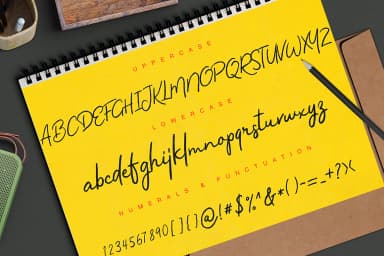 UPPERCASE
ABCDEFGHIJKLMNOPQRSTUVWXYZ
LOWERCASE
abcdefghijklmnopqrstuvwxyz
NUMERALS & PUNCTUATION
1234567890[][]@!#$%^&*()-=_+?><